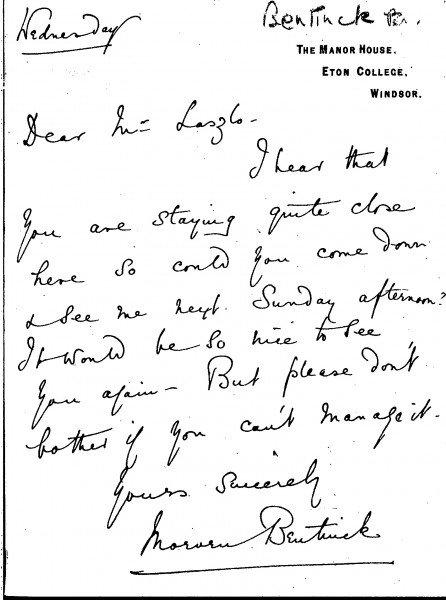 Wednesday
Bentinck
THE MANOR HOUSE.
ETON COLLEGE,
WINDSOR.
Dear Mr Laszlo-
I hear that
you are staying quite close
here so could you come down
& see me next Sunday afternoon?
It would be so nice to see
you again - But please don't
bother if you can't manage it.
Yours Sincerely
Morven Bentinck